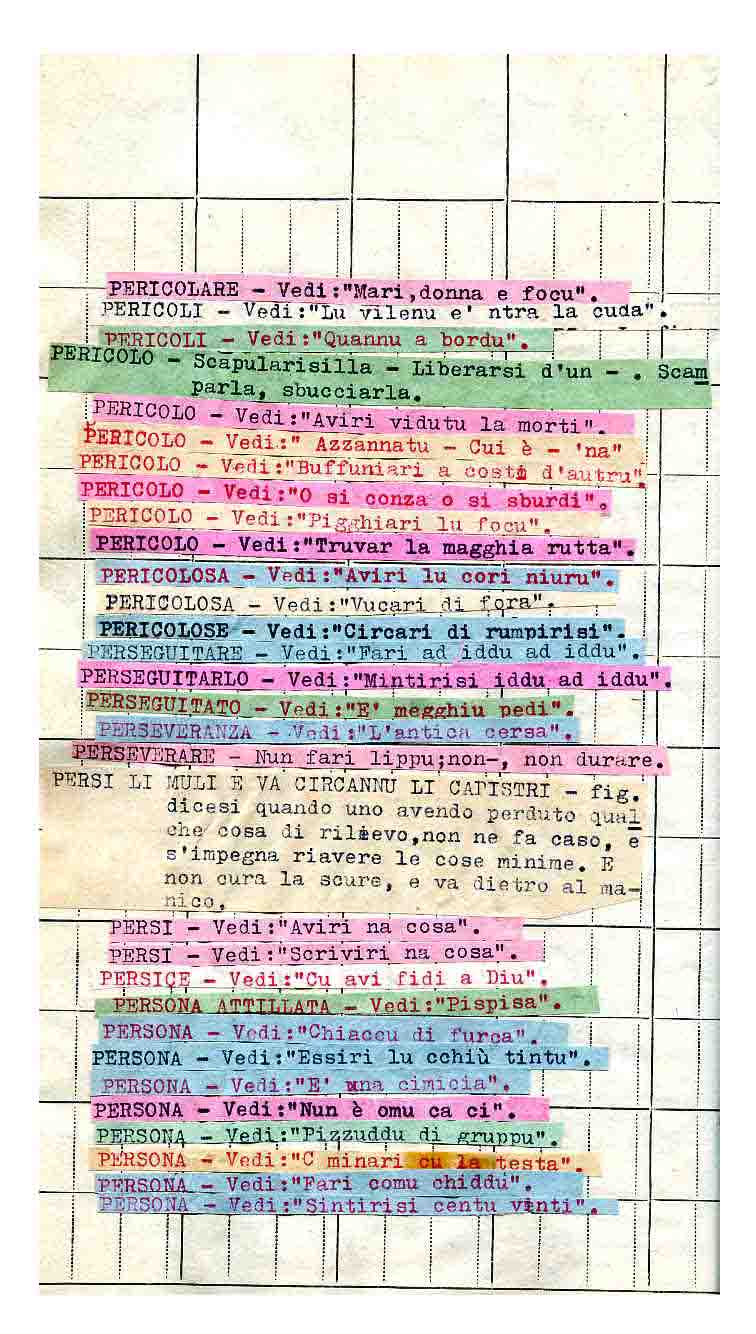 PERICOLARE - Vedi:"Mari,donna e focu".
PERICOLI - Vedi:"Lu vilenu e' ntra la cuda".
PERICOLI - Vedi:"Quannu a bordu".
PERICOLO - Scapularisilla - Liberarsi d'un - . Scam
parla, sbucciarla.
PERICOLO - Vedi:"Aviri vidutu la morti".
PERICOLO - Vedi:" Azzannatu - Cui è - 'na"
PERICOLO - Vedi:"Buffuniari a costi d'autru"
PERICOLO - Vedi:"O si conza o si sburdi".
PERICOLO - Vedi:"Pigghiari lu focu".
PERICOLO - Vedi:"Truvar la magghia rutta".
PERICOLOSA - Vedi:"Aviri lu cori niuru".
PERICOLOSA - Vedi:"Vucari di fora".
PERICOLOSE - Vedi:"Circari di rumpirisi".
PERSEGUITARE - Vedi:"Fari ad iddu ad iddu".
PERSEGUITARLO - Vedi:"Mintirisi iddu ad iddu".
PERSEGUITATO - Vedi:"E' megghiu pedi".
PERSEVERANZA - Vedi:"L'antica cersa".
PERSEVERARE - Nun fari lippu;non-, non durare.
PERSI LI MULI E VA CIRCANNU LI CAPISTRI - fig.
dicesi quando uno avendo perduto qual
che cosa di rilievo,non ne fa caso, e
s'impegna riavere le cose minime. E
non cura la scure, e va dietro al ma-
nico.
PERSI - Vedi:"Aviri na cosa".
PERSI - Vedi:"Scriviri na cosa".
PERSICE - Vedi:"Cu avi fidi a Diu".
PERSONA ATTILLATA - Vedi:"Pispisa".
PERSONA - Vedi:"Chiaccu di furca".
PERSONA - Vedi:"Essiri lu cchiù tintu".
PERSONA - Vedi:"E' una cimicia".
PERSONA - Vedi:"Nun è omu ca ci".
PERSONA - Vedi:"Pizzuddu di gruppu".
PERSONA - Vedi:"C minari cu la testa".
PERSONA - Vedi:"Fari comu chiddu".
PERSONA - Vedi:"Sintirisi centu vinti".